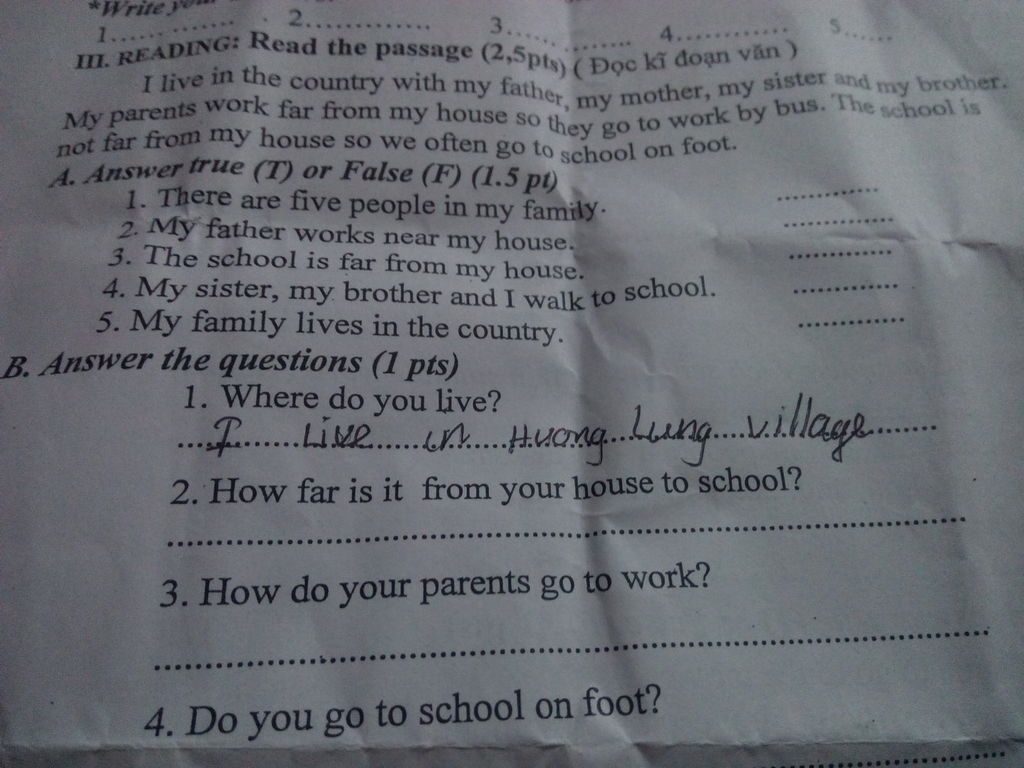 *Write
1.................. 2.................. 3.................. 4.................. 5......
III. READING: Read the passage (2,5pts) ( Đọc kĩ đoạn văn )
I live in the country with my father, my mother, my sister and my brother.
My parents work far from my house so they go to work by bus. The school is
not far from my house so we often go to school on foot.
A. Answer true (T) or False (F) (1.5 pt)
1. There are five people in my family. ..................
2. My father works near my house. ..................
3. The school is far from my house. ..................
4. My sister, my brother and I walk to school. ..................
5. My family lives in the country. ..................
B. Answer the questions (1 pts)
1. Where do you live?
I live in Huong Lung village
2. How far is it from your house to school?
3. How do your parents go to work?
4. Do you go to school on foot?